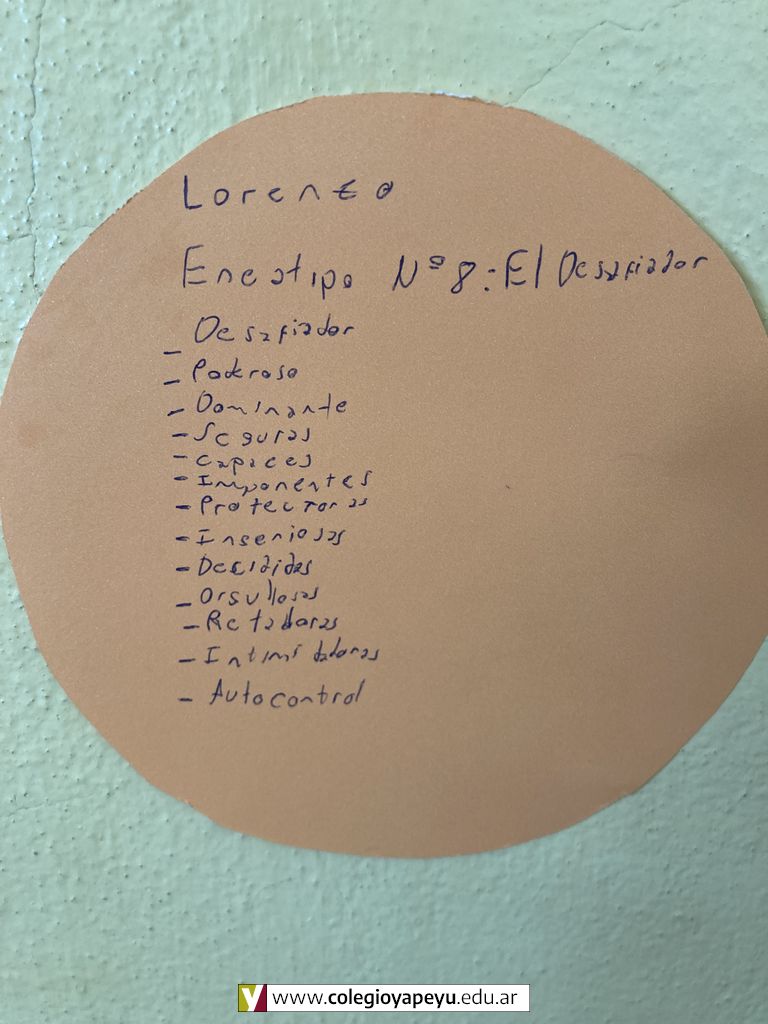 Lorenzo
Eneatipo Nº 8: El Desafiador
- Desafiador
- Poderoso
- Dominante
- Seguras
- capaces
- Imponentes
- Protectoras
- Ingeniosas
- Decididas
- Orgullosas
- Retadoras
- Intimidadoras
- Autocontrol
www.colegioyapeyu.edu.ar